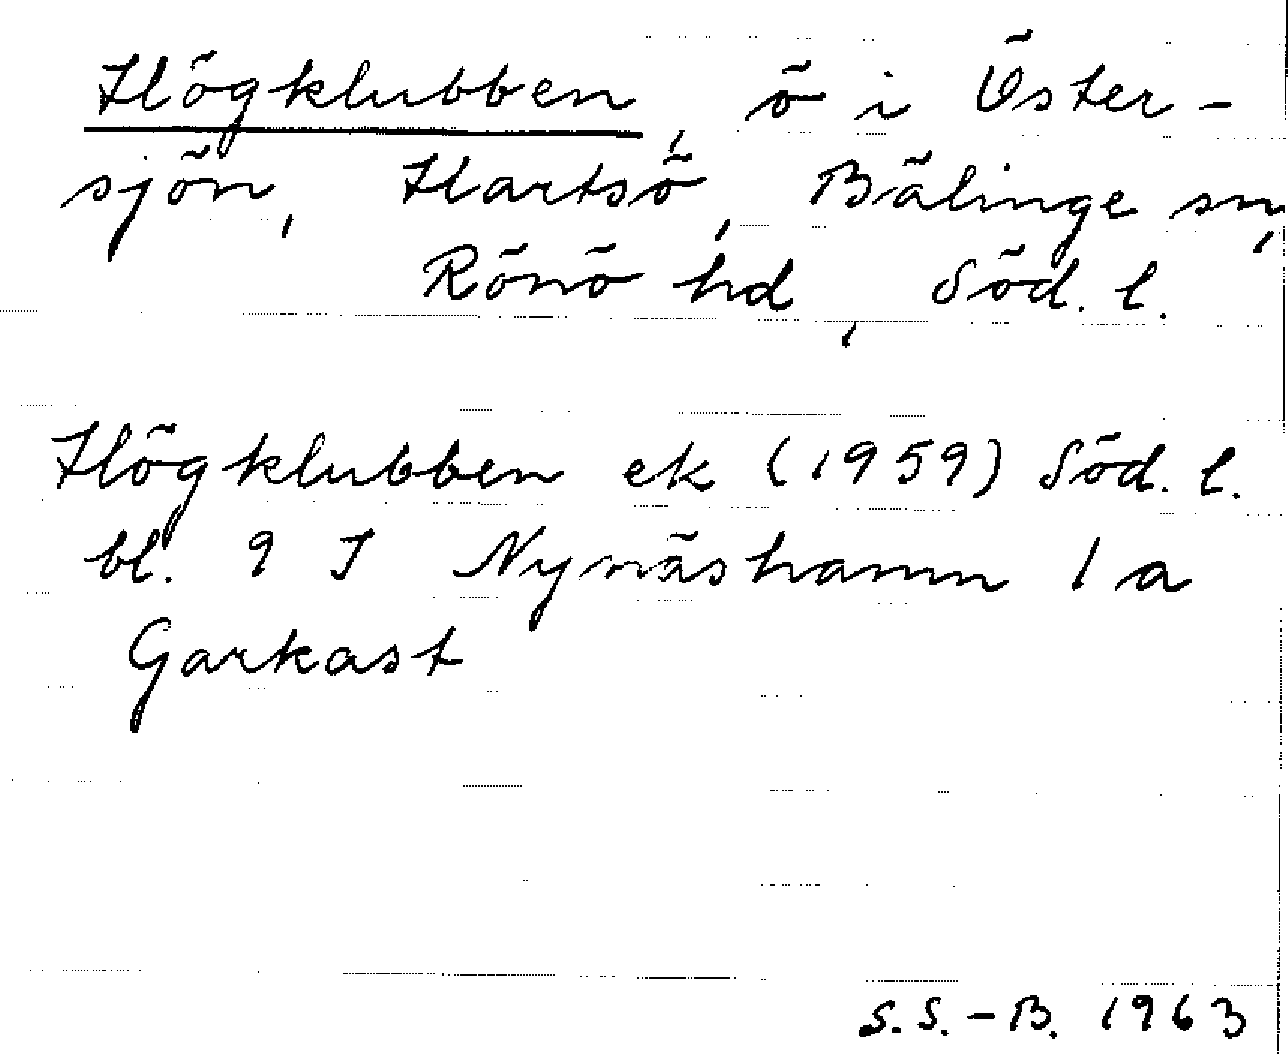 Högklubben, ö i Öster-
sjön, Hartsö, Bälinge sn,
Rönö hd, Söd. l.
Högklubben ek (1959) Söd. l.
bl. 9 I Nynäshamn 1 a
Garkast
S.S.-B. 1963